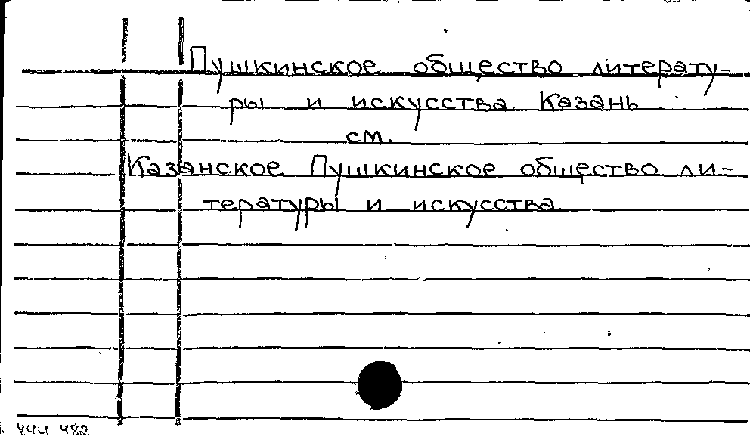 Пушкинское общество литерату-
ры и искусства Казань
см.
Казанское Пушкинское общество ли-
тературы и искусства